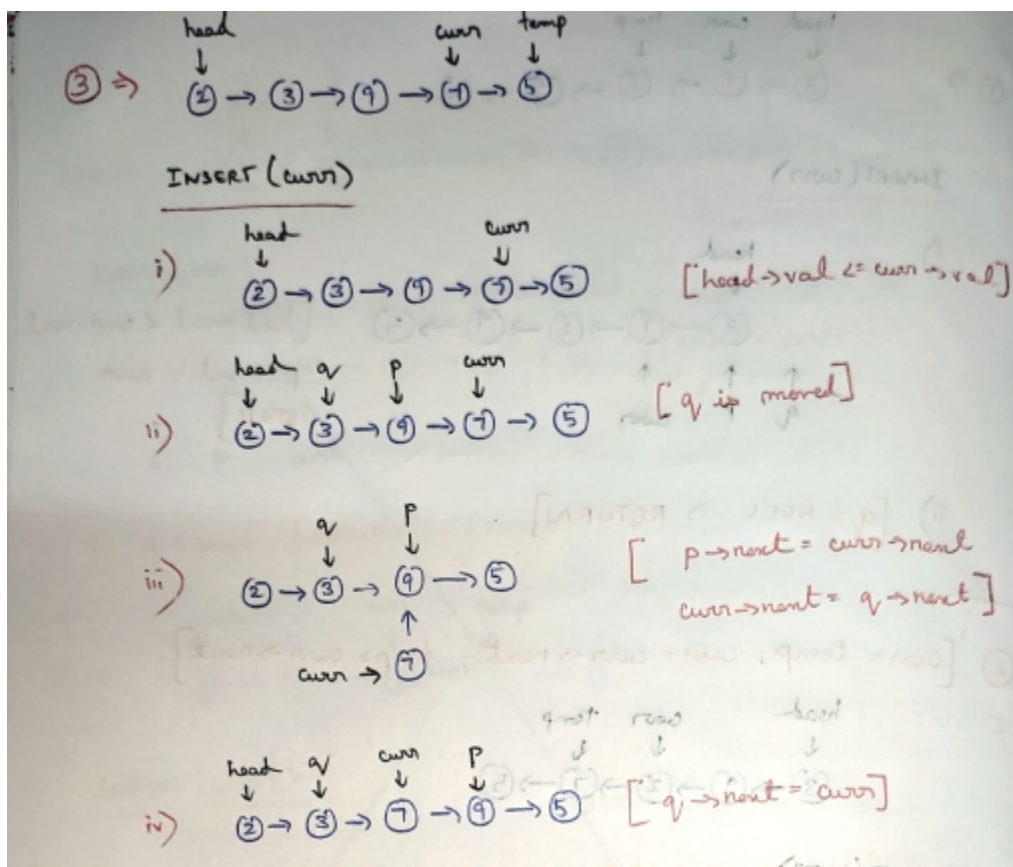 head curr temp
↓ ↓ ↓
③ ⇒ ② → ③ → ⑨ → ⑦ → ⑤
INSERT (curr)
head curr
↓ ↓
i) ② → ③ → ⑨ → ⑦ → ⑤ [head→val <= curr→val]
head q p curr
↓ ↓ ↓ ↓
ii) ② → ③ → ⑨ → ⑦ → ⑤ [q is moved]
q p
↓ ↓
iii) ② → ③ → ⑨ → ⑤ [ p→next = curr→next
↑ curr→next = q→next ]
curr → ⑦
head q curr p
↓ ↓ ↓ ↓
iv) ② → ③ → ⑦ → ⑨ → ⑤ [ q→next = curr]